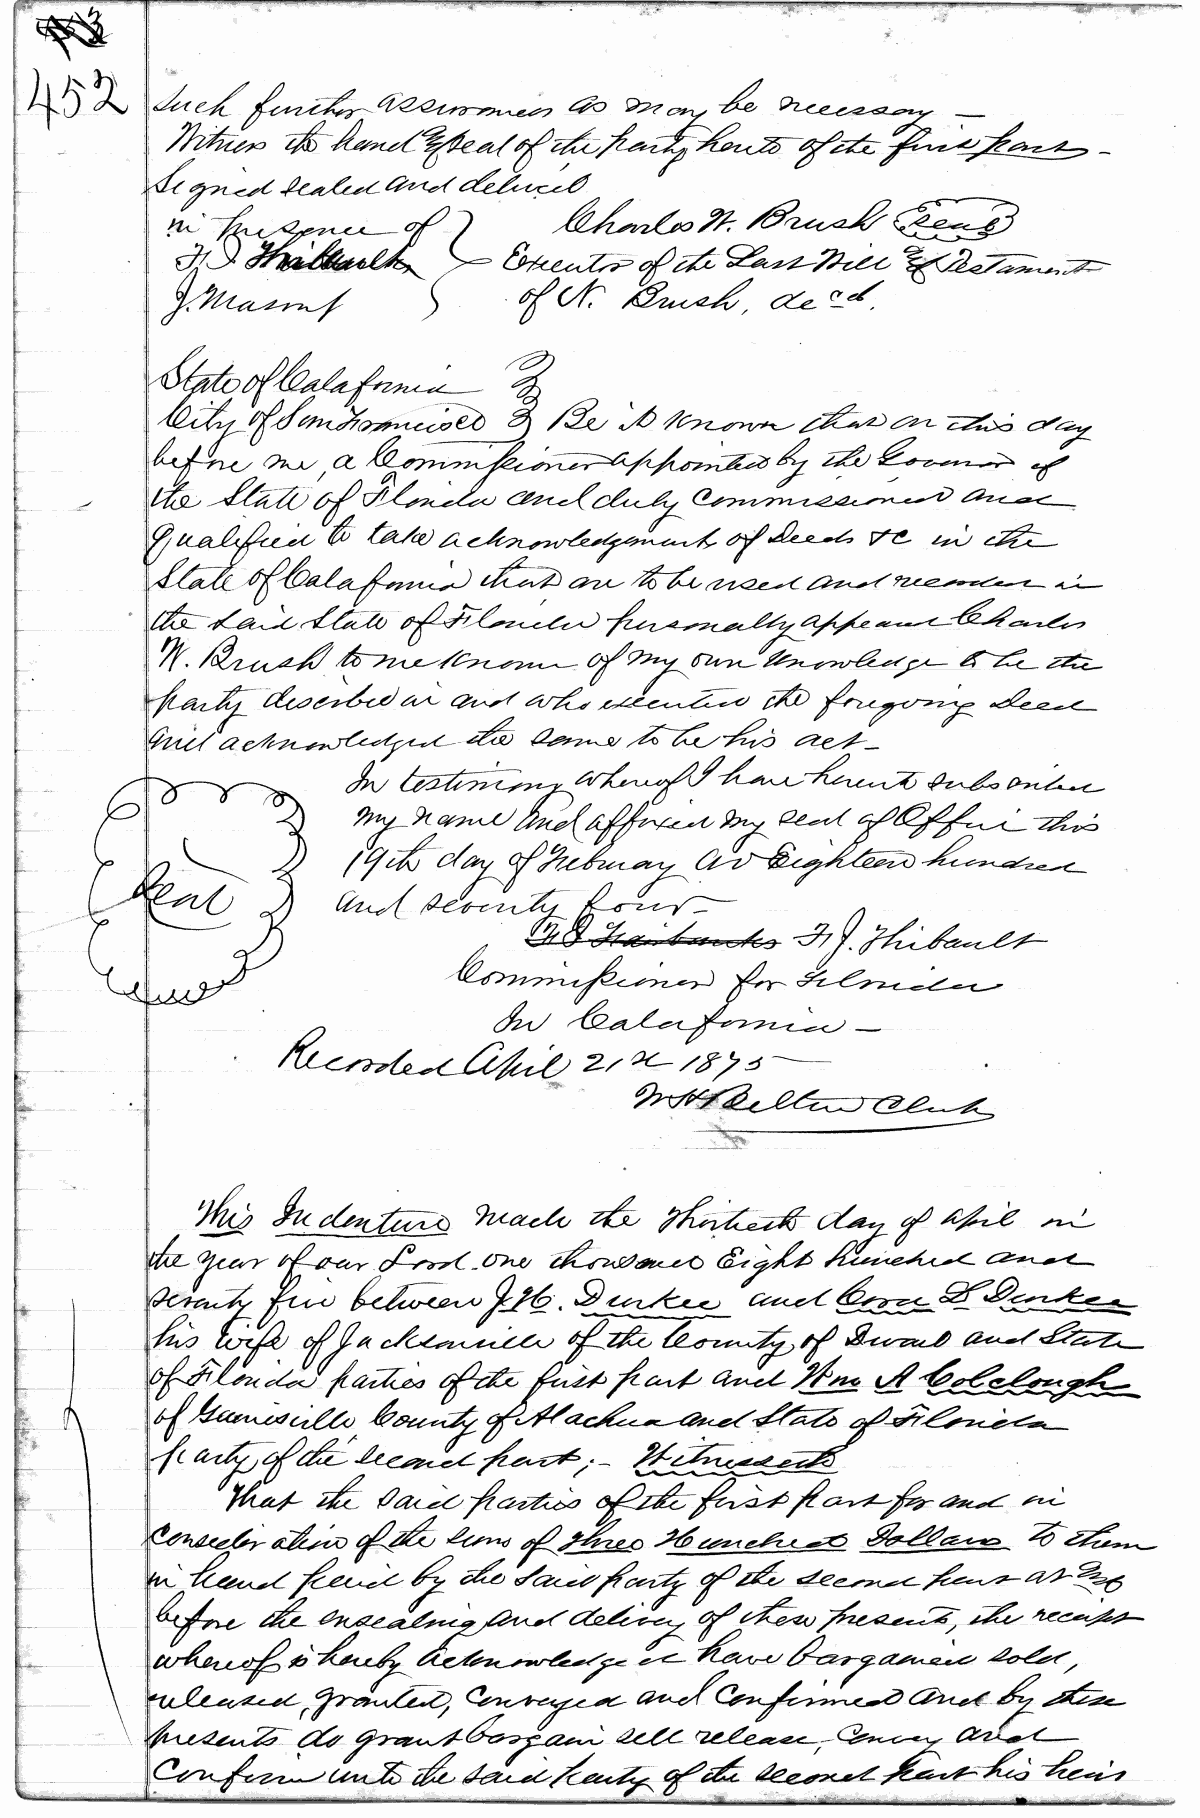 452
Such further assurances as may be necessary —
Witness the hand & seal of the party hereto of the first part -
Signed sealed and deliverd
in presence of Charles W. Brush Seal
F. J. Thibault Executor of the Last Will & Testament
J. Mason of N. Brush, decd.
State of Calafornia
City of San Francisco Be it Known that on this day
before me, a Commissioner appointed by the Govenor of
the State of Florida and duly commissioned and
qualified to take acknowledgments of Deeds &c in the
State of Calafornia that are to be used and recorded in
the said State of Florida personally appeared Charles
W. Brush to me known of my own knowledge to be the
party described in and who executed the foregoing Deed
and acknowledged the same to be his act -
In testimony whereof I have hereunto subscribed
my name and affixed my seal of Office this
19th day of Febuary AD Eighteen hundred
Seal
and seventy four -
F J Fairbanks F. J. Thibault
Commissioner for Florida
In Calafornia -
Recorded April 21st 1875
Clerk
This Indenture made the Thirtieth day of April in
the year of our Lord one thousand Eight hundred and
seventy five between J. H. Durkee and Cora L Durkee
his wife of Jacksonville of the County of Duval and State
of Florida parties of the first part and Wm A Colclough
of Gainesville County of Alachua and State of Florida
party of the second part ; - Witnesseth
That the said parties of the first part for and in
consideration of the sum of Three Hundred Dollars to them
in hand paid by the said party of the second part at &
before the ensealing and delivery of these presents, the receipt
whereof is hereby acknowledged have bargained sold,
released, granted, conveyed and confirmed and by these
presents do grant bargain sell release, convey and
Confirm unto the said party of the second part his heirs